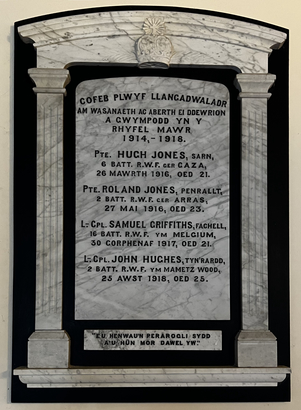 COFEB PLWYF LLANGADWALADR
AM WASANAETH AC ABERTH EI DDEWRION
A GWYMPODD YN Y
RHYFEL MAWR
1914,-1918.
PTE. HUGH JONES, SARN,
6 BATT. R.W.F. GER GAZA,
26 MAWRTH 1916, OED 21.
PTE. ROLAND JONES, PENRALLT,
2 BATT. R.W.F. GER ARRAS,
27 MAI 1916, OED 23.
L-CPL. SAMUEL GRIFFITHS, FACHELL,
16 BATT. R.W.F. YM MELGIUM,
30 GORPHENAF 1917, OED 21.
L-CPL. JOHN HUGHES, TYN'RARDD,
2 BATT. R.W.F. YM MAMETZ WOOD,
25 AWST 1918, OED 25.
"EU HENWAU'N PERAROGLI SYDD
A'U HÛN MOR DAWEL YW."